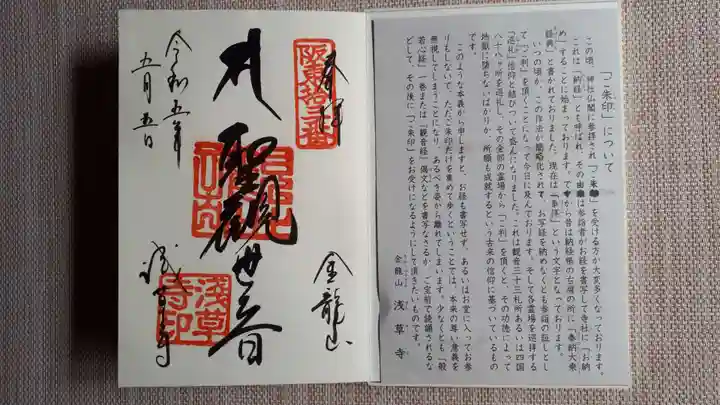 「ご朱印」について
この頃、神社仏閣に参拝され「ご朱印」を受ける方が大変多くなっております。
これは「納経」とも呼ばれ、その由来は参詣者がお経を書写して寺社に「お納
め」することに始まっております。ですから昔は納経帳の右肩の所に「奉納大乗
経典」と書かれておりました。現在は「奉拝」という文字となっております。
いつの頃か、この作法が簡略化されて、お写経を納めなくとも参詣の証しとし
て「ご判」を頂くことになって今日に及んでおります。そして各霊場を巡拝する
「巡礼」信仰と結びついて盛んになりました。これは観音三十三札所あるいは四国
八十八ヶ所を巡礼し、その全部の霊場から「ご判」を頂くと、その功徳によって
地獄に堕ちないばかりか、所願も成就するという古来の信仰に基づいているもの
です。
このような本義から申しますと、お経も書写せず、あるいはお堂に入ってお参
りもしないで、ただご朱印だけを集めて歩くということでは、本来の尊い意義を
無視してしまうことになり、あるべき姿から離れてしまいます。少なくとも「般
若心経」一巻または「観音経」偈文などを書写なさるか、ご宝前で読誦されるな
どして、その後に「ご朱印」をお受けになるようにして頂きたいものです。
金龍山 浅草寺
奉拝
坂東拾三番
金龍山
聖観世音
浅草寺印
浅草寺
令和五年
五月五日